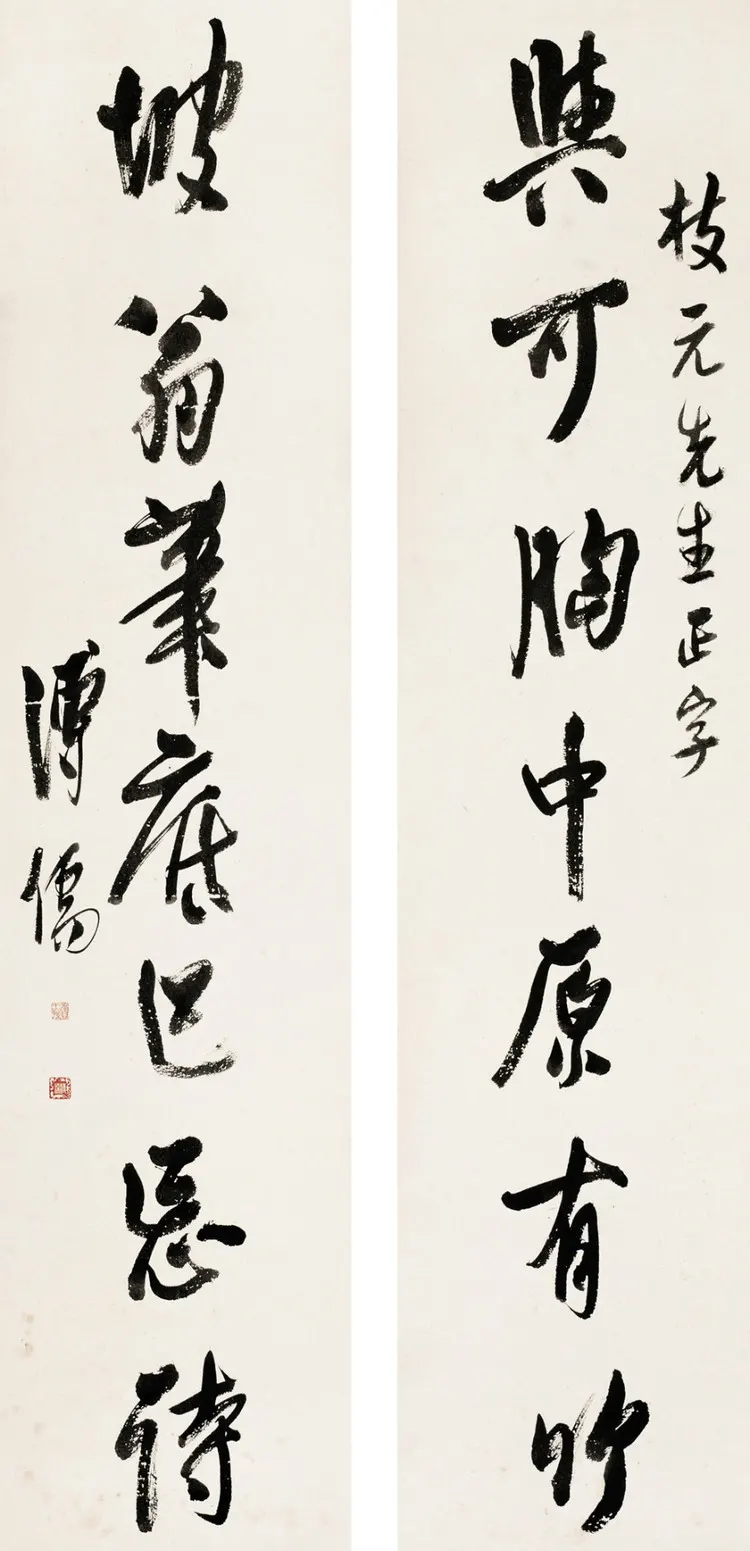 枝元先生正字
與可胸中原有竹
坡翁筆底已忘詩
溥儒